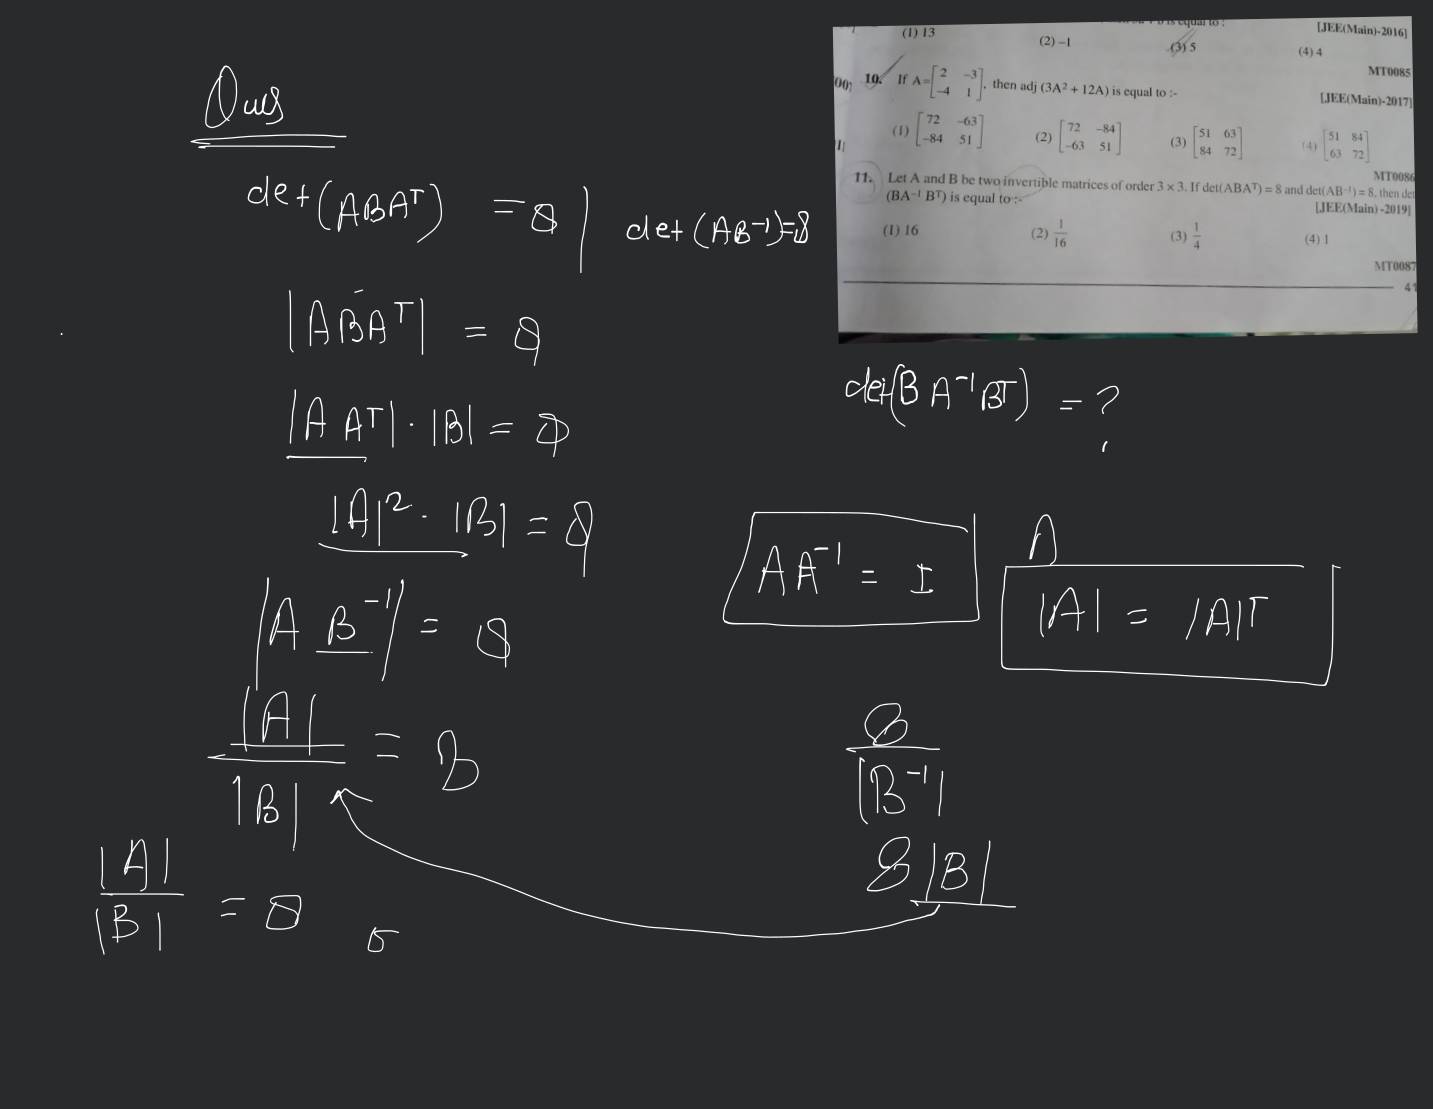 Ques
det(ABAᵀ) = 8 | det(AB⁻¹)=8
|ABAᵀ| = 8
|A Aᵀ| · |B| = 8
|A|² · |B| = 8
|A B⁻¹| = 8
|A|
= 8
|B|
|A|
= 8
|B|
(1) 13 (2) –1 (3) 5 (4) 4
is equal to :
[JEE(Main)-2016]
MT0085
10. If A = [2 –3; –4 1], then adj (3A² + 12A) is equal to :-
[JEE(Main)-2017]
(1) [72 –63; –84 51] (2) [72 –84; –63 51] (3) [51 63; 84 72] (4) [51 84; 63 72]
MT0086
11. Let A and B be two invertible matrices of order 3 × 3. If det(ABAᵀ) = 8 and det(AB⁻¹) = 8, then det
(BA⁻¹ Bᵀ) is equal to :-
[JEE(Main) -2019]
(1) 16 (2) 1/16 (3) 1/4 (4) 1
MT0087
41
det(B A⁻¹ Bᵀ) = ?
AA⁻¹ = I
A
|A| = |A|ᵀ
8
|B⁻¹|
8 |B|